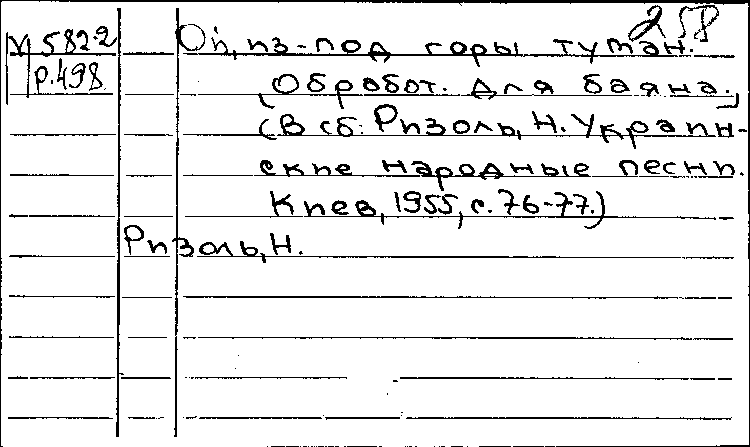 258
М 5822
р.498
Ой, из-под горы туман.
[Обработ. для баяна.]
(В сб: Ризоль, Н. Украин-
ские народные песни.
Киев, 1955, с. 76-77.)
Ризоль, Н.